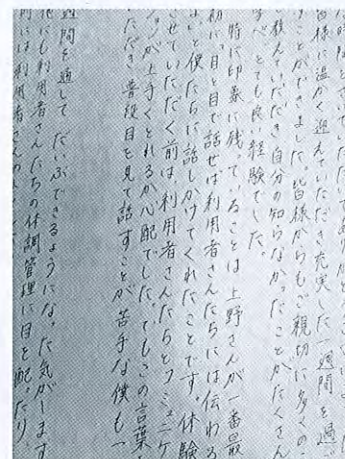 時ほどさせていただいてありがと
皆様に温かく迎えていただき充実した一週間を過ご
ことができました。皆様からもご親切に多くのこ
教えていただき自分の知らなかったことがたくさん
学べとても良い経験でした。
特に印象に残っていることは上野さんが一番最
初に、目と目で話せば利用者さんたちには伝わる
よいと僕たちに話しかけてくれたことです。体験
させていただく前は、利用者さんたちとコミュニケ
ションが上手くとれるか心配でした。でもこの言葉
ただき普段目を見て話すことが苦手な僕も一
週間を通してだいぶできるようになった気がします
他にも利用者さんたちの体調管理に目を配ったり、
には利用者さんの